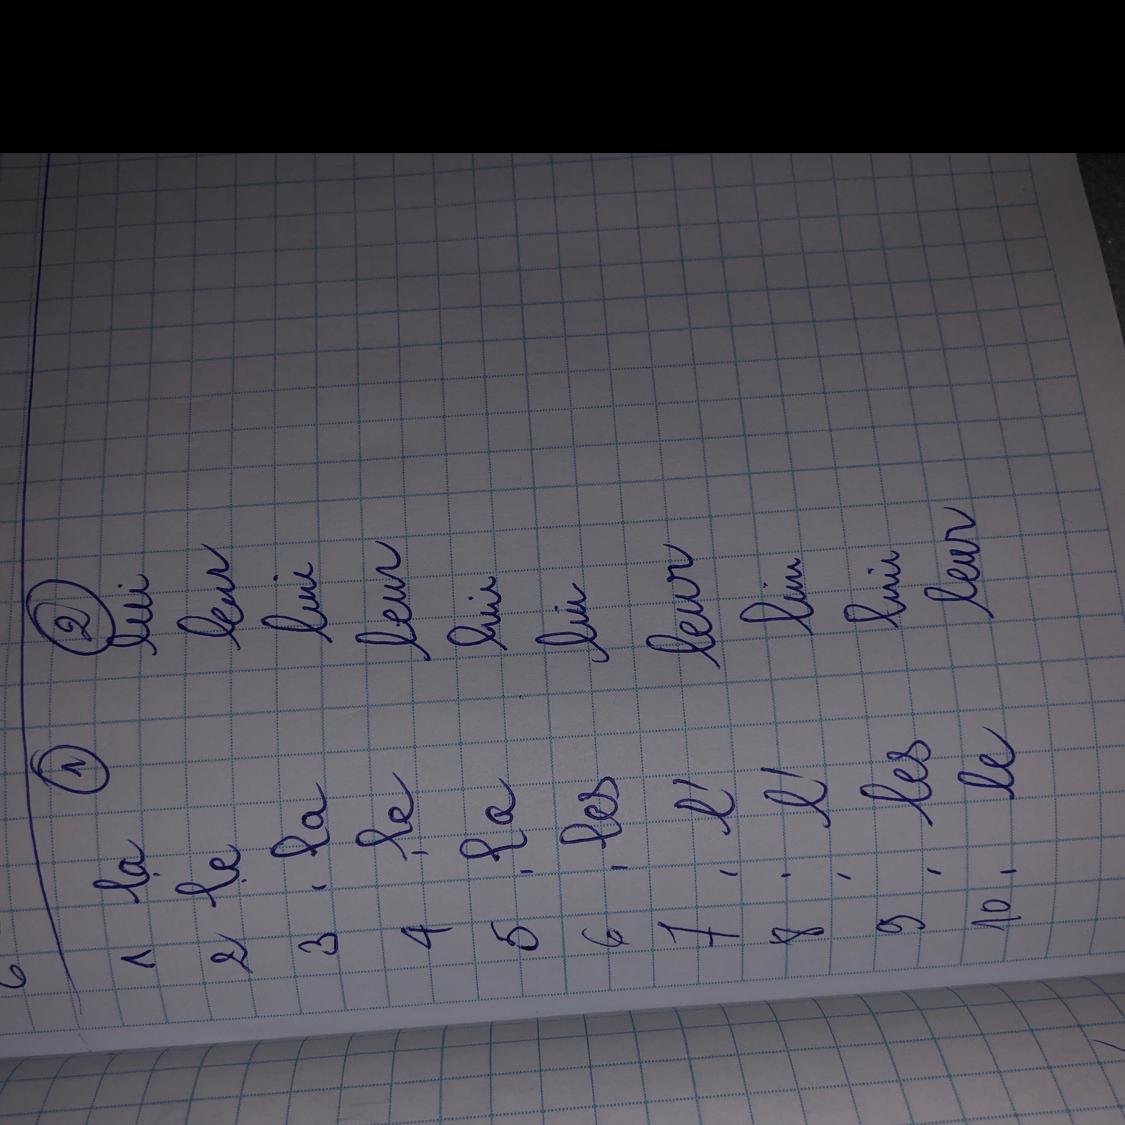 6
① ②
1 la lui
2 le leur
3, la lui
4, le leur
5, la lui
6, les lui
7, l' leur
8, l' lui
9, les lui
10, le leur